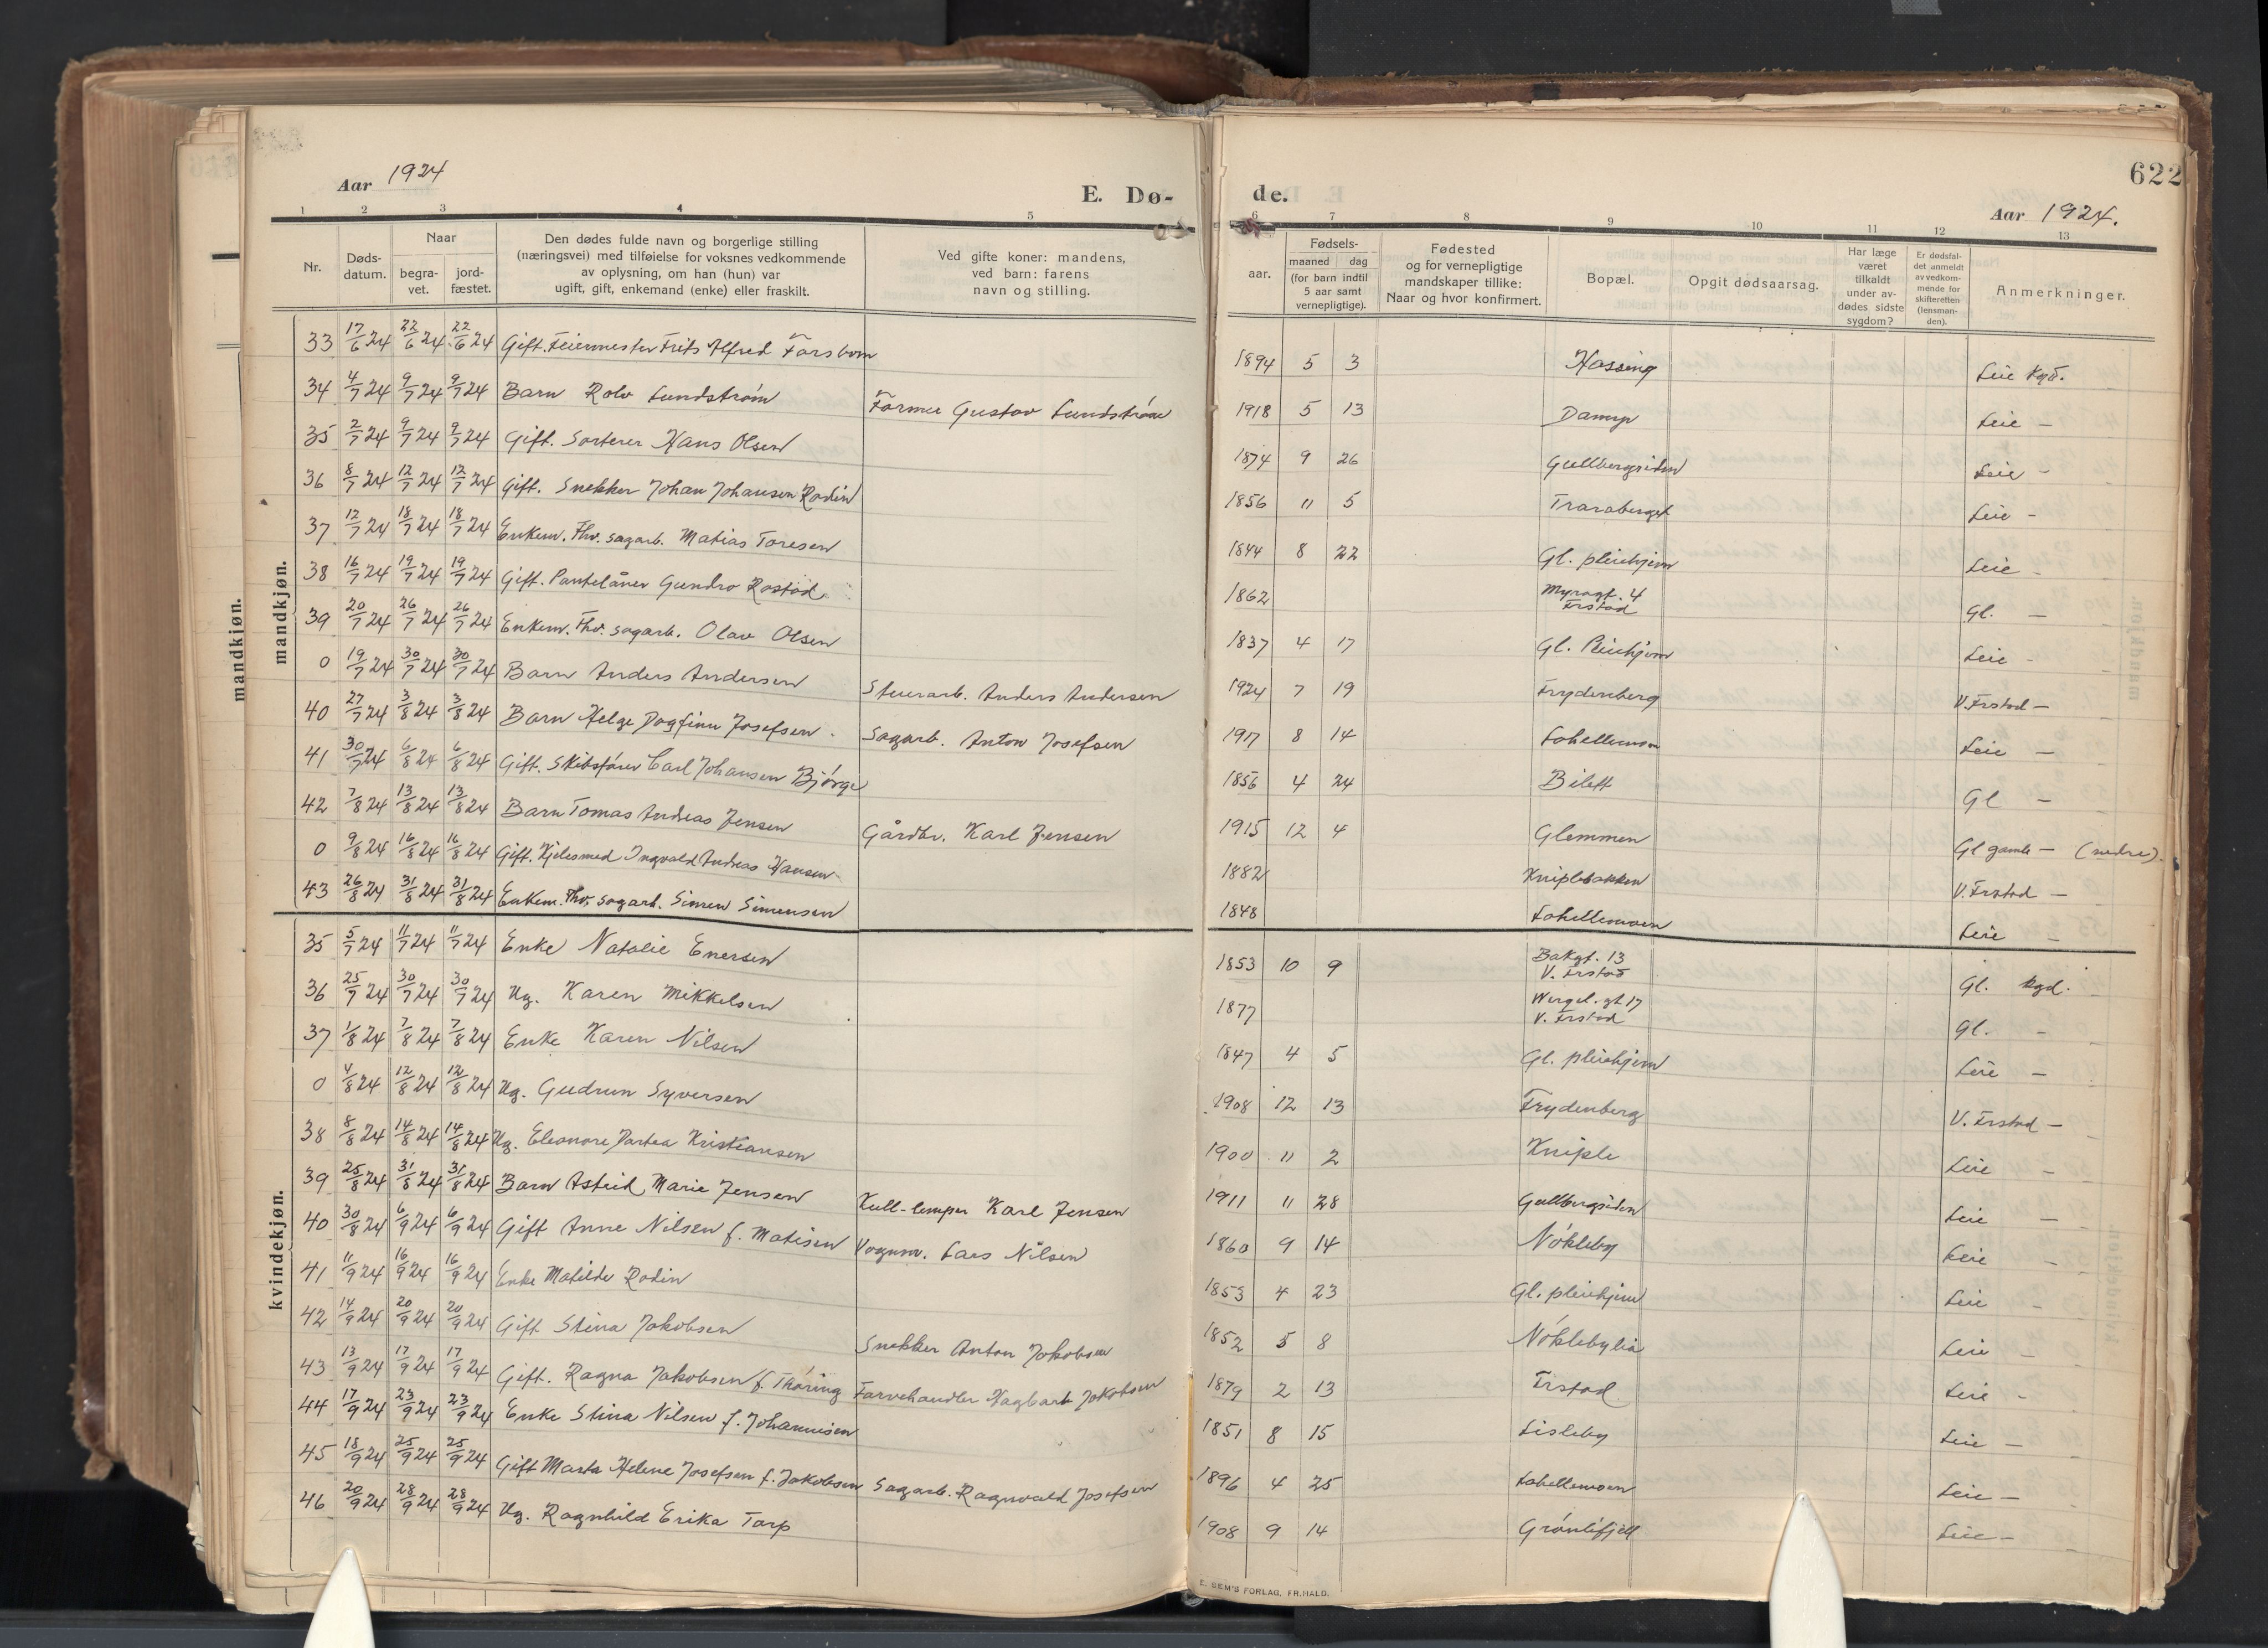 622
Aar 1924
E. Dø-
de.
Aar 1924.
1 2 3 4 5 6 7 8 9 10 11 12 13
Nr.
Døds-
datum.
Naar
begra-
vet.
jord-
fæstet.
Den dødes fulde navn og borgerlige stilling
(næringsvei) med tilføielse for voksnes vedkommende
av oplysning, om han (hun) var
ugift, gift, enkemand (enke) eller fraskilt.
Ved gifte koner: mandens,
ved barn: farens
navn og stilling.
aar.
Fødsels-
maaned dag
(for barn indtil
5 aar samt
vernepligtige).
Fødested
og for vernepligtige
mandskaper tillike:
Naar og hvor konfirmert.
Bopæl.
Opgit dødsaarsag.
Har læge
været
tilkaldt
under av-
dødes sidste
sygdom?
Er dødsfal-
det anmeldt
av vedkom-
mende for
skifteretten
(lensman-
den).
Anmerkninger.
mandkjøn.
mandkjøn.
33 17/6 24 22/6 24 22/6 24 Gift. Feiermester Frits Alfred Forsbom 1894 5 3 Hassing Leie kgd.
34 4/7 24 9/7 24 9/7 24 Barn Rolv Lundstrøm Former Gustav Lundstrøm 1918 5 13 Damyr Leie —
35 2/7 24 9/7 24 9/7 24 Gift. Sorterer Hans Olsen 1874 9 26 Gullbergsiden Leie -
36 8/7 24 12/7 24 12/7 24 Gift. Snekker Johan Johansen Rodin 1856 11 5 Traraberget Leie -
37 12/7 24 18/7 24 18/7 24 Enkem. Fhv. sagarb. Matias Toresen 1844 8 22 Gl. pleiehjem Leie -
38 16/7 24 19/7 24 19/7 24 Gift. Pantelåner Gundro Rostad 1862 Myragt. 4
Frstad Gl. —
39 20/7 24 26/7 24 26/7 24 Enkem. Fhv. sagarb. Olav Olsen 1837 4 17 Gl. Pleiehjem Leie -
0 19/7 24 30/7 24 30/7 24 Barn Anders Andersen Stuerarb. Anders Andersen 1924 7 19 Frydenberg V. Frstad —
40 27/7 24 3/8 24 3/8 24 Barn Helge Dagfinn Josefsen Sagarb. Anton Josefsen 1917 8 14 Lahellemoen Leie —
41 30/7 24 6/8 24 6/8 24 Gift. Skibsfører Carl Johansen Bjørge 1856 4 24 Bilett Gl —
42 7/8 24 13/8 24 13/8 24 Barn Tomas Andreas Jensen Gårdbr. Karl Jensen 1915 12 4 Glemmen Gl gamle — (nedre).
0 9/8 24 16/8 24 16/8 24 Gift. Kjelesmed Ingvald Andreas Hansen 1882 Kniplebakken V. Frstad —
43 26/8 24 31/8 24 31/8 24 Enkem. Fhv. sagarb. Simen Simensen 1848 Lahellemoen Leie —
kvindekjøn.
35 5/7 24 11/7 24 11/7 24 Enke Natalie Enersen 1853 10 9 Bakgt. 13
V. Frstad Gl. kgd.
36 25/7 24 30/7 24 30/7 24 Ug. Karen Mikkelsen 1877 Wergel. gt 17
V. Frstad Gl. -
37 1/8 24 7/8 24 7/8 24 Enke Karen Nilsen 1847 4 5 Gl. pleiehjem Leie —
0 4/8 24 12/8 24 12/8 24 Ug. Gudrun Syversen 1908 12 13 Frydenberg V. Frstad —
38 8/8 24 14/8 24 14/8 24 Ug. Eleonore Dortea Kristiansen 1900 11 2 Kniple Leie —
39 25/8 24 31/8 24 31/8 24 Barn Astrid Marie Jensen Kull-lemper Karl Jensen 1911 11 28 Gullbergsiden Leie —
40 30/8 24 6/9 24 6/9 24 Gift Anne Nilsen f. Matisen Vognm. Lars Nilsen 1860 9 14 Nøkleby Leie —
41 11/9 24 16/9 24 16/9 24 Enke Matilde Rodin 1853 4 23 Gl. pleiehjem Leie -
42 14/9 24 20/9 24 20/9 24 Gift Stina Jakobsen Snekker Anton Jakobsen 1852 5 8 Nøklebylia Leie —
43 13/9 24 17/9 24 17/9 24 Gift. Ragna Jakobsen f. Thøring Farvehandler Hagbart Jakobsen 1879 2 13 Frstad Leie -
44 17/9 24 23/9 24 23/9 24 Enke Stina Nilsen f. Johannisen 1851 8 15 Lisleby Leie —
45 18/9 24 25/9 24 25/9 24 Gift Marta Helene Josefsen f. Jakobsen Sagarb. Ragnvald Josefsen 1896 4 25 Lahellemoen Leie —
46 20/9 24 28/9 24 28/9 24 Ug. Ragnhild Erika Tarp 1908 9 14 Grønlifjell Leie —
E. SEM'S FORLAG, FR.HALD.